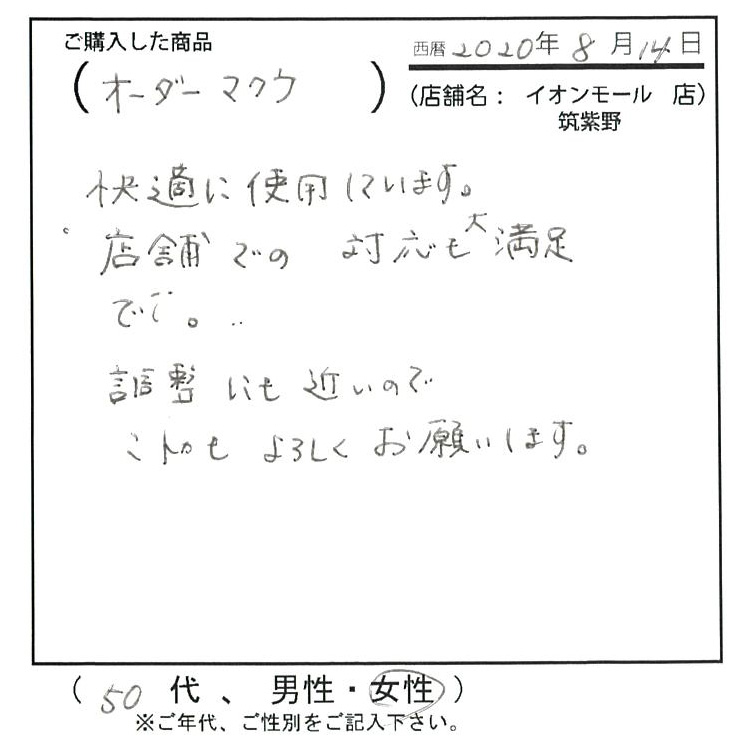 ご購入した商品
西暦 2020年 8月14日
(オーダーマクラ)
(店舗名: イオンモール 店)
筑紫野
快適に使用しています。
店舗での 対応も大満足
です。
調整にも近いので
これからも よろしくお願いします。
(50 代、男性・女性)
※ご年代、ご性別をご記入下さい。